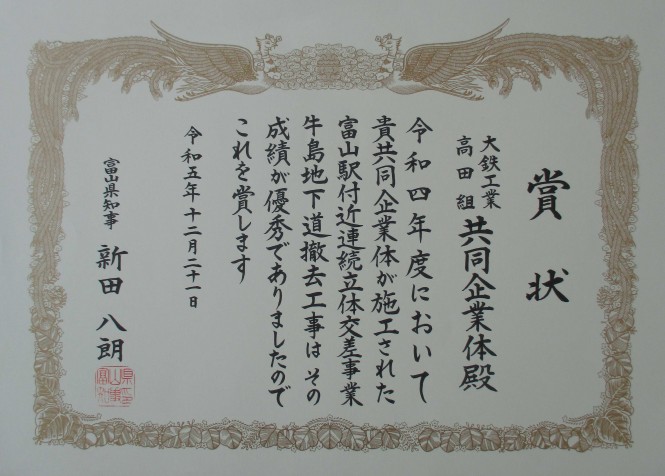 賞状
大鉄工業
高田組
共同企業体殿
令和四年度において
貴共同企業体が施工された
富山駅付近連続立体交差事業
牛島地下道撤去工事はその
成績が優秀でありましたので
これを賞します
令和五年十二月二十一日
富山県知事 新田八朗